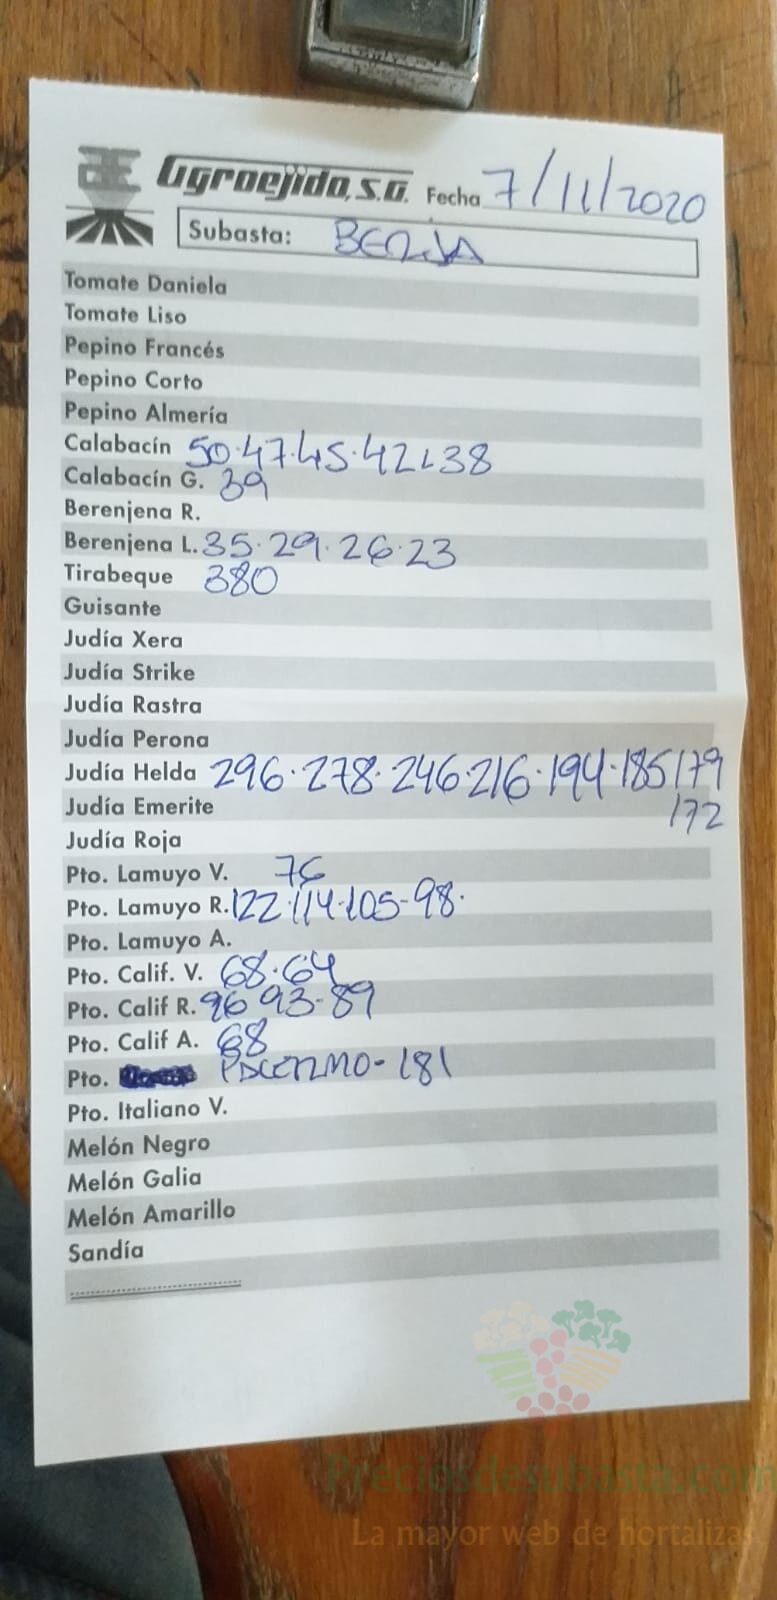 Agroejido, S.A. Fecha 7/11/2020
Subasta: BERJA
Tomate Daniela
Tomate Liso
Pepino Francés
Pepino Corto
Pepino Almería
Calabacín 50.47.45.42.38
Calabacín G. 39
Berenjena R.
Berenjena L. 35.29.26.23
Tirabeque 380
Guisante
Judía Xera
Judía Strike
Judía Rastra
Judía Perona
Judía Helda 296.278.246.216.194.185 179
172
Judía Emerite
Judía Roja
Pto. Lamuyo V. 76
Pto. Lamuyo R. 122.114.105-98.
Pto. Lamuyo A.
Pto. Calif. V. 68.64
Pto. Calif R. 96 93-89
Pto. Calif A. 68
Pto. - 181
Pto. Italiano V.
Melón Negro
Melón Galia
Melón Amarillo
Sandía
Preciosdesubasta.com
La mayor web de hortalizas